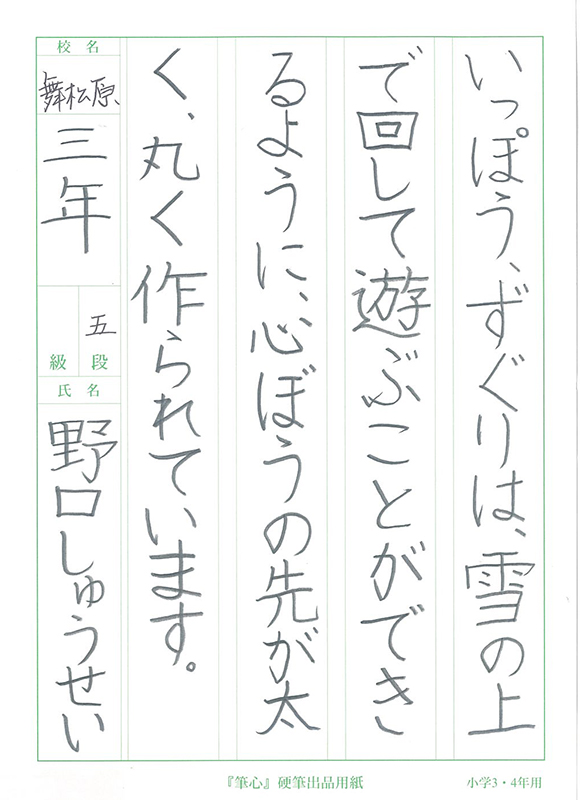 いっぽう、ずぐりは、雪の上
で回して遊ぶことができ
るように、心ぼうの先が太
く、丸く作られています。
校名
舞松原
三年
五
段
級
氏名
野口しゅうせい
『筆心』硬筆出品用紙
小学3・4年用